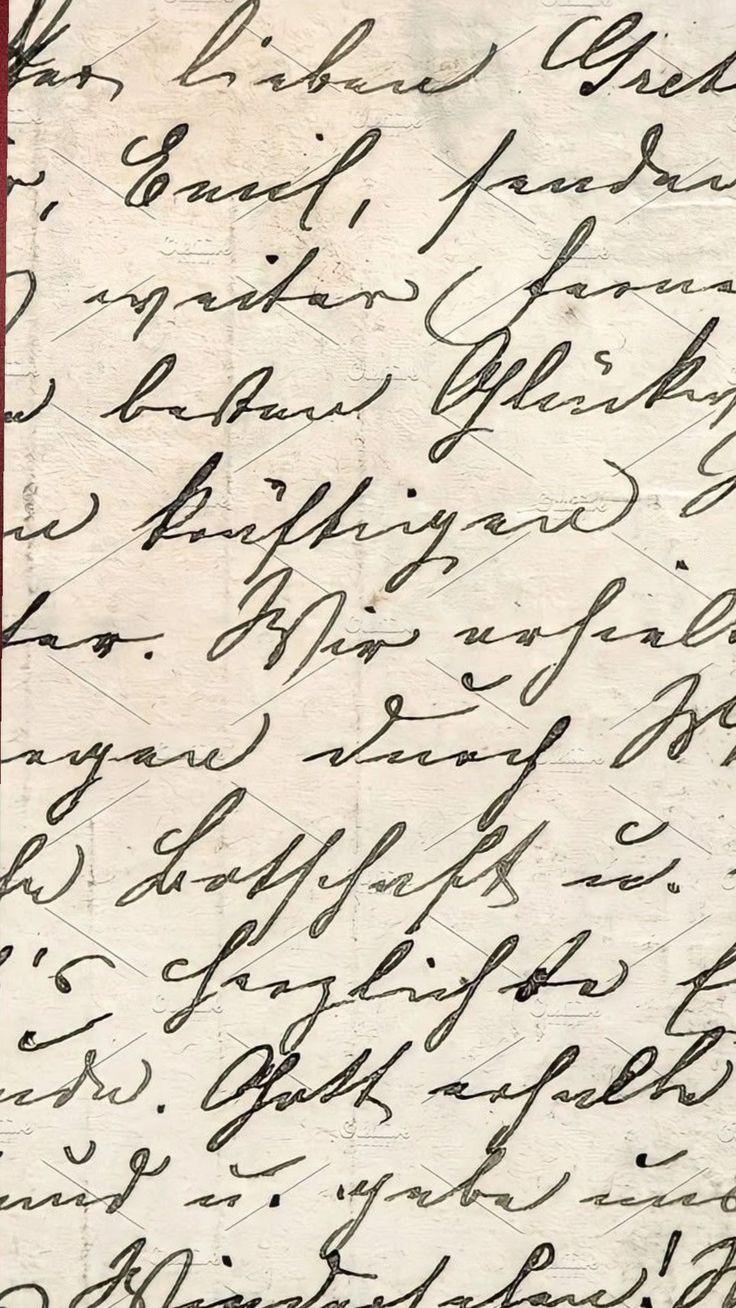 lieben Gret
Emil, senden
weiter ferne
besten Glückw
kräftigen
ter. Wir erhiel
egen durch
Botschaft u.
's herzlichste
nde. Gott erhalte
und u. gebe uns
Wiedersehen!